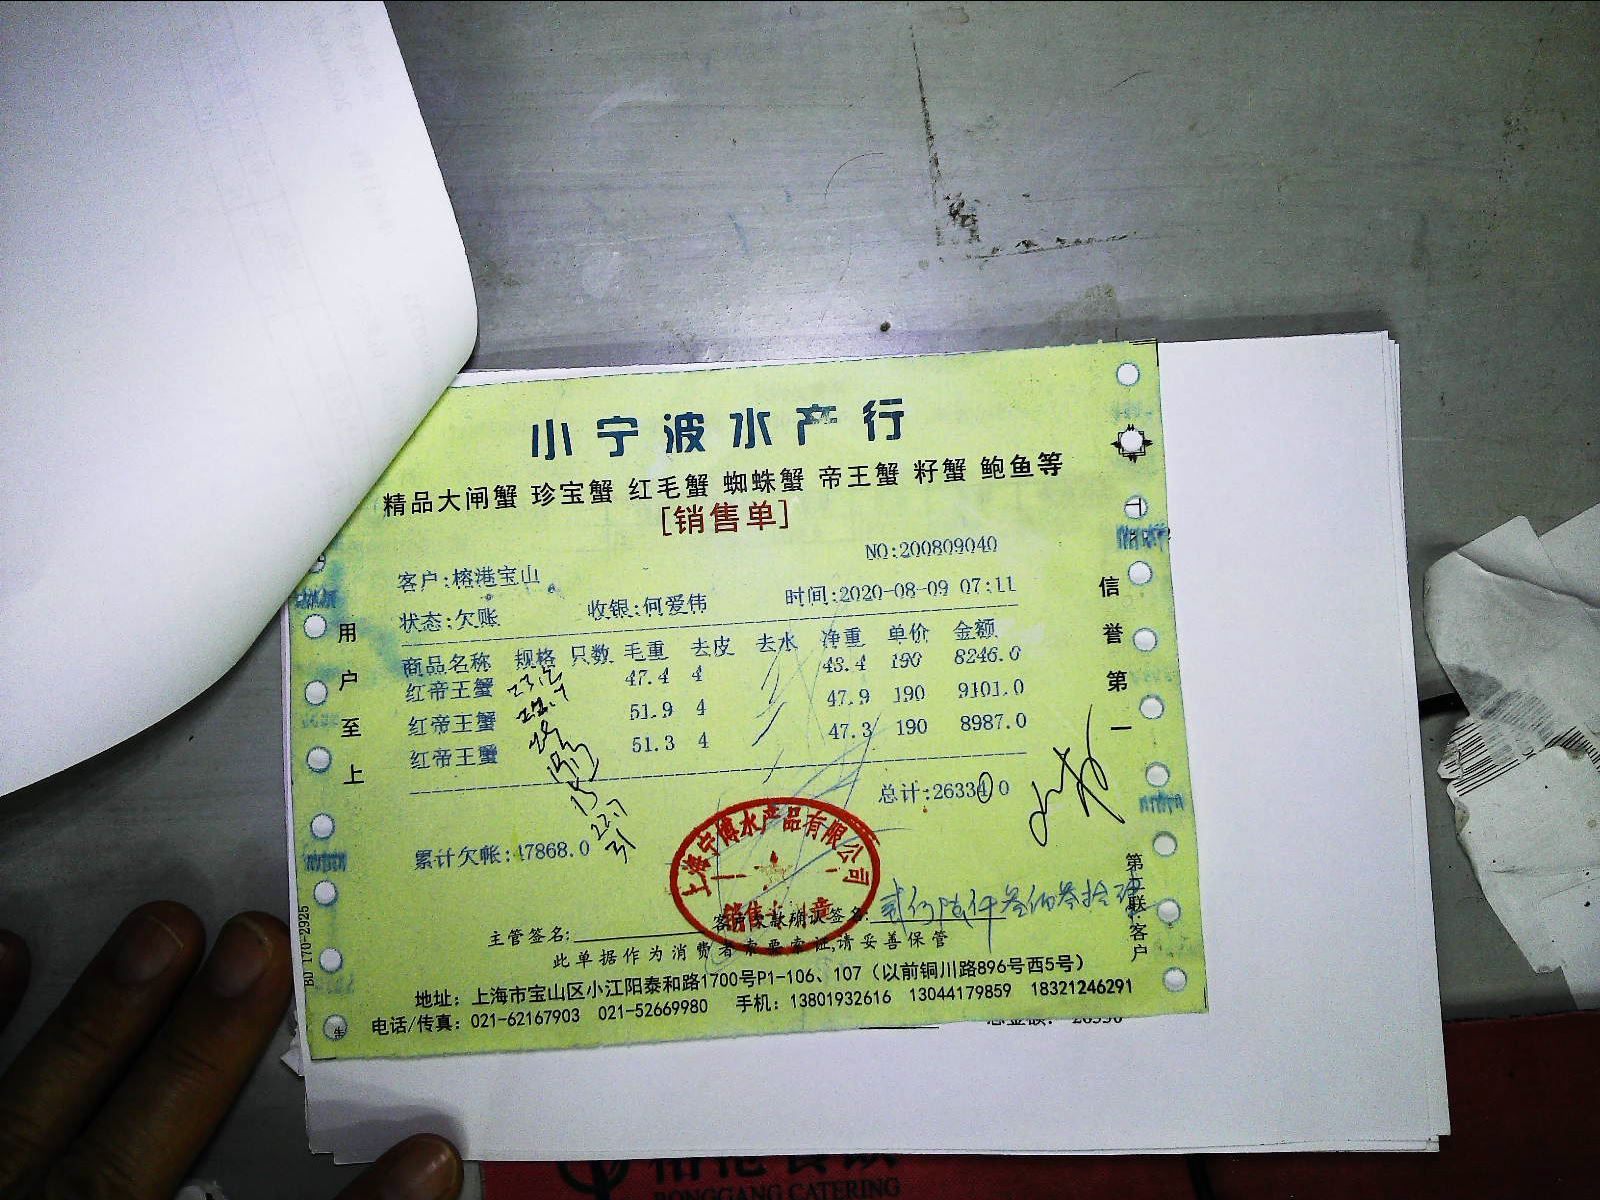 小宁波水产行
精品大闸蟹 珍宝蟹 红毛蟹 蜘蛛蟹 帝王蟹 籽蟹 鲍鱼等
[销售单]
NO:200809040
客户:榕港宝山
状态:欠账 收银:何爱伟 时间:2020-08-09 07:11
商品名称 规格 只数 毛重 去皮 去水 净重 单价 金额
红帝王蟹 47.4 4 43.4 190 8246.0
红帝王蟹 51.9 4 47.9 190 9101.0
红帝王蟹 51.3 4 47.3 190 8987.0
总计:26334.0
累计欠帐:47868.0
上海宁博水产品有限公司
主管签名:
此单据作为消费者索要索证,请妥善保管
地址：上海市宝山区小江阳泰和路1700号P1-106、107（以前铜川路896号西5号）
电话/传真：021-62167903 021-52669980 手机：13801932616 13044179859 18321246291
用户至上
信誉第一
第二联:客户
BD 170-2925
总金额: 26330
RONGGANG CATERING